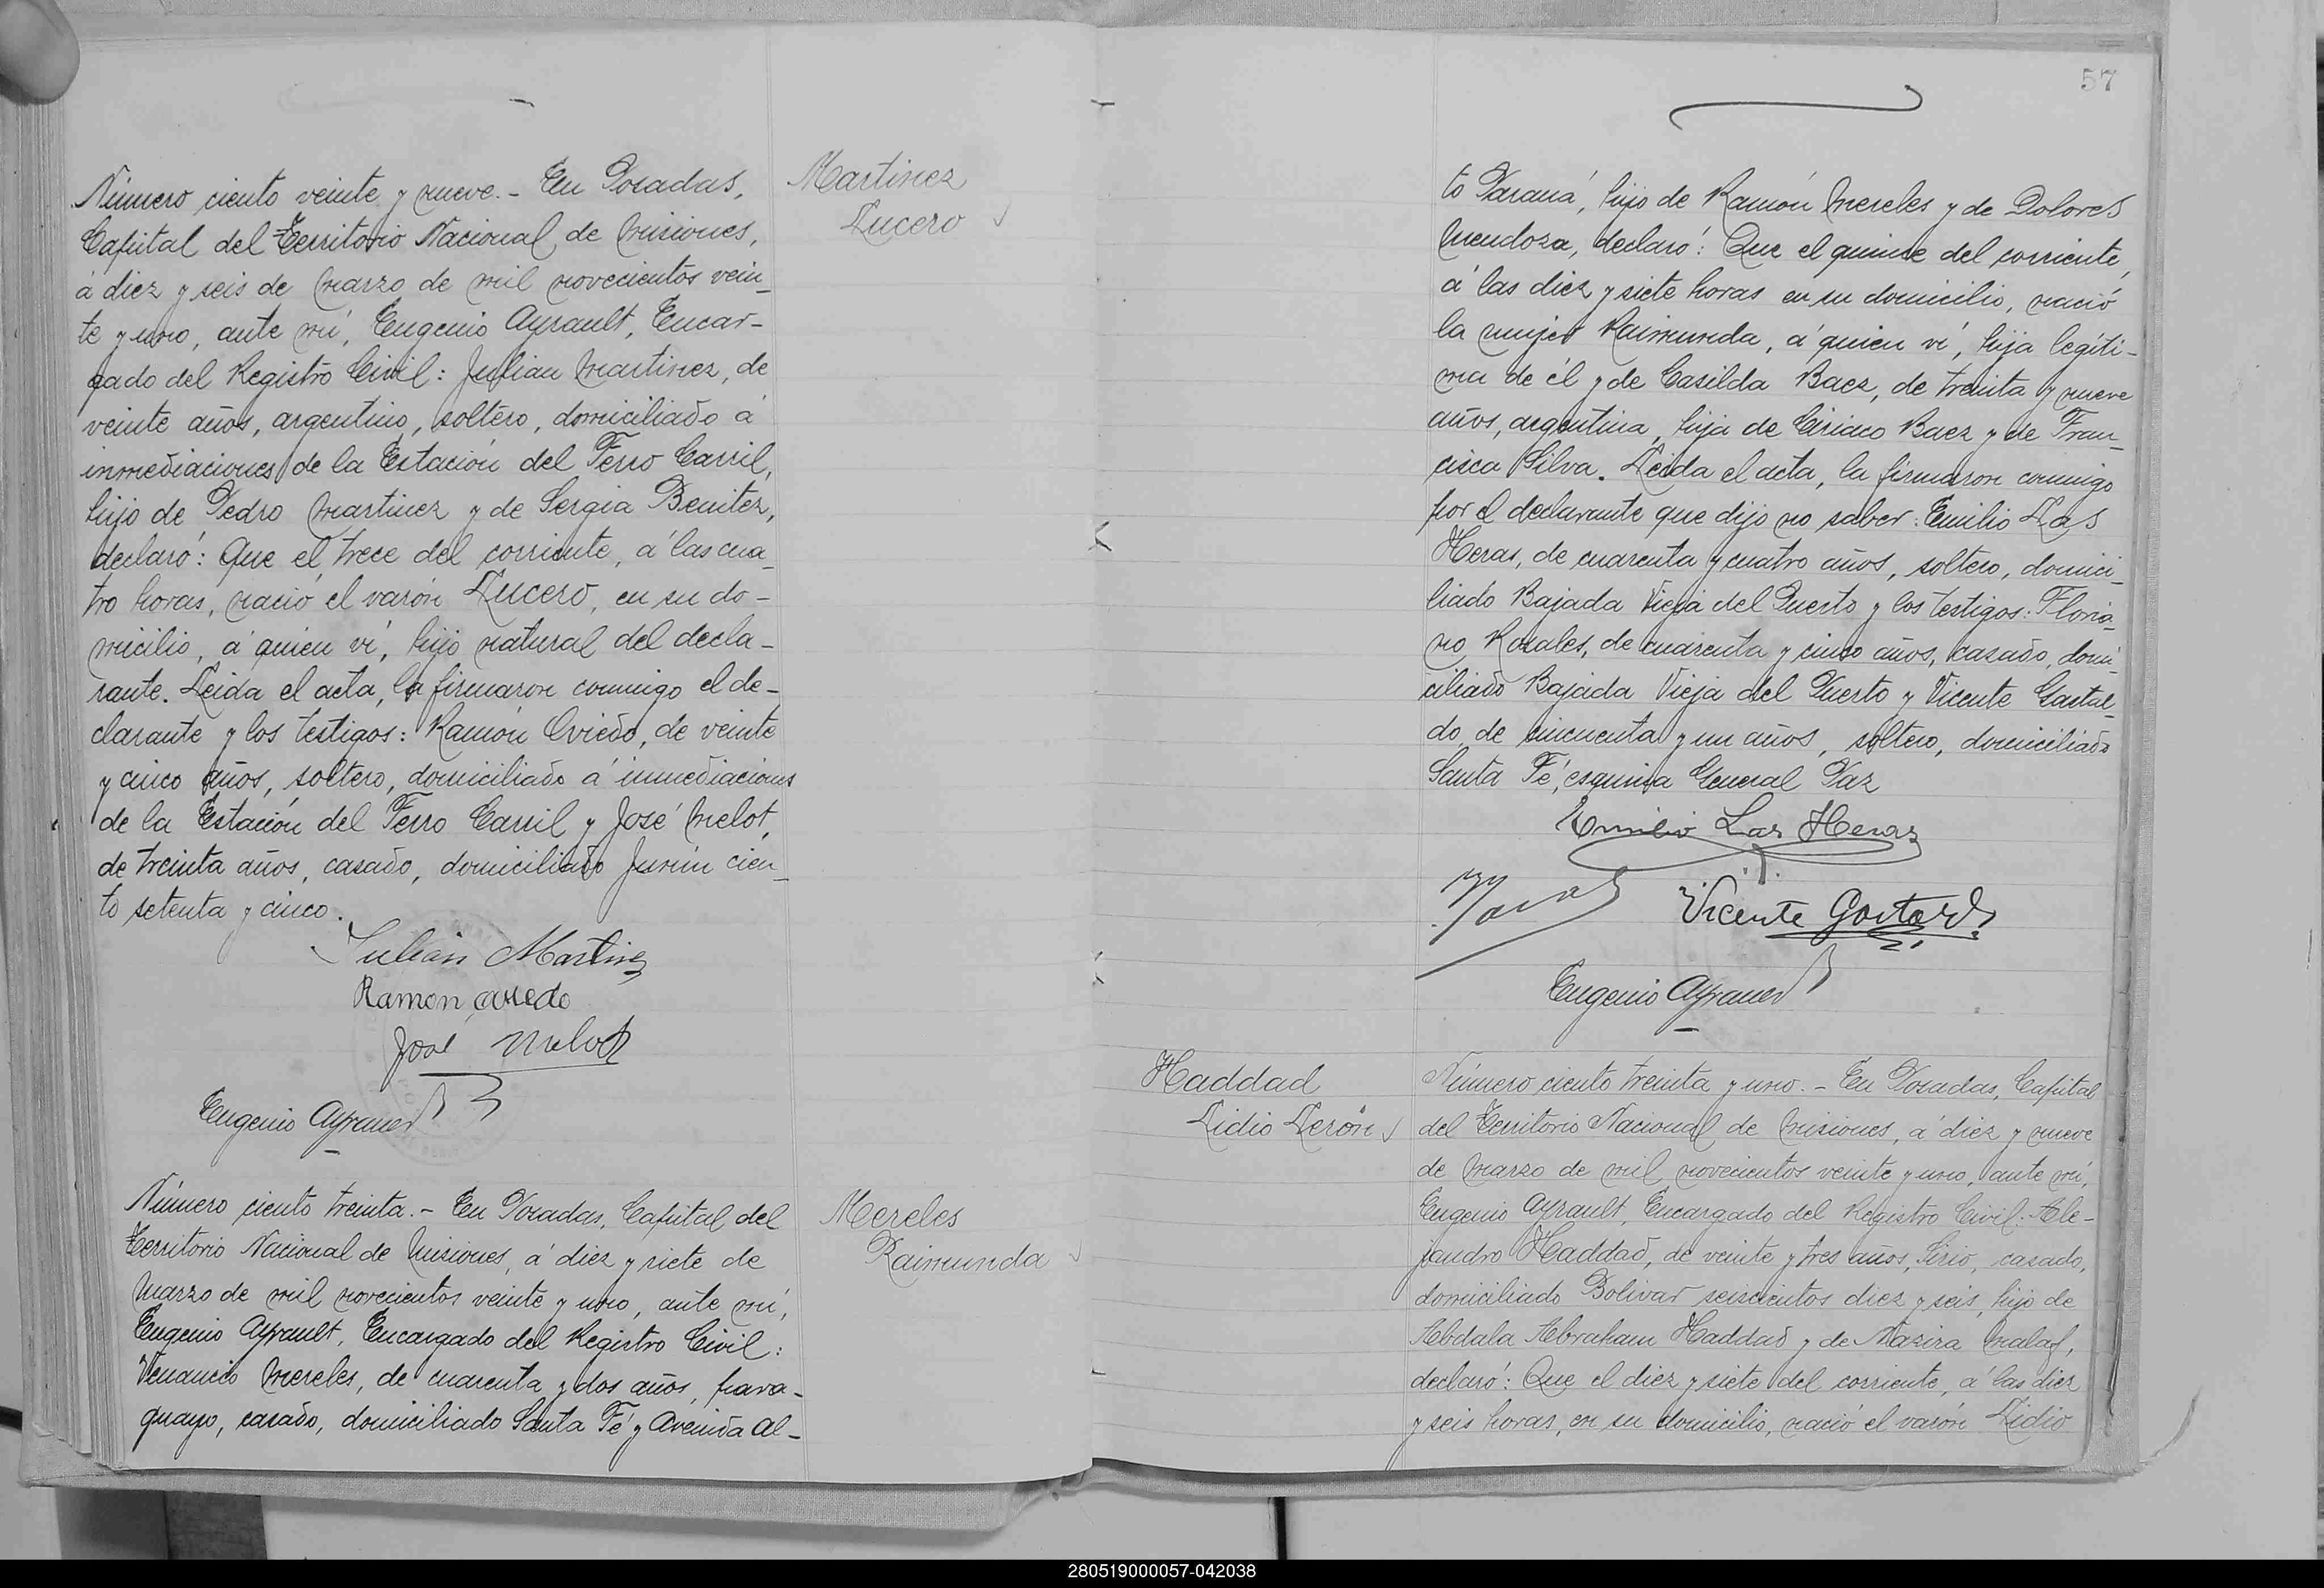 Número ciento veinte y nueve.- En Posadas,
Capital del Territorio Nacional de Misiones,
á diez y seis de Marzo de mil novecientos vein-
te y uno, ante mí, Eugenio Ayrault, Encar-
gado del Registro Civil: Julian Martinez, de
veinte años, argentino, soltero, domiciliado á
inmediaciones de la Estación del Ferro Carril,
hijo de Pedro Martinez y de Sergia Benitez,
declaró: Que el trece del corriente, á las cua-
tro horas, nació el varón Lucero, en su do-
micilio, á quien ví, hijo natural del decla-
rante. Leida el acta, la firmaron conmigo el de-
clarante y los testigos: Ramón Oviedo, de veinte
y cinco años, soltero, domiciliado á inmediaciones
de la Estación del Ferro Carril y José Melot,
de treinta años, casado, domiciliado Junín cien-
to setenta y cinco.
Julian Martinez
Ramon
José Melot
Eugenio Ayrault
Martinez
Lucero
Número ciento treinta.- En Posadas, Capital del
Territorio Nacional de Misiones, á diez y siete de
Marzo de mil novecientos veinte y uno, ante mí,
Eugenio Ayrault, Encargado del Registro Civil:
Venancio Mereles, de cuarenta y dos años, para-
guayo, casado, domiciliado Santa Fé y Avenida Al-
Mereles
Raimunda
57
to Paraná, hijo de Ramón Mereles y de Dolores
Mendoza, declaró: Que el quince del corriente,
á las diez y siete horas en su domicilio, nació
la mujer Raimunda, á quien ví, hija legíti-
ma de él y de Casilda Baez, de treinta y nueve
años, argentina, hija de Ciriaco Baez y de Fran-
cisca Silva. Leida el acta, la firmaron conmigo
por el declarante que dijo no saber: Emilio Las
Heras, de cuarenta y cuatro años, soltero, domici-
liado Bajada Vieja del Puerto y los testigos: Floria-
no Rosales, de cuarenta y cinco años, casado, domi-
ciliado Bajada Vieja del Puerto y Vicente Gastal-
do, de cincuenta y un años, soltero, domiciliado
Santa Fé, esquina General Paz
Emilio Las Heras
Vicente Gastaldo
Eugenio Ayrault
Haddad
Lidio Lerón
Número ciento treinta y uno.- En Posadas, Capital
del Territorio Nacional de Misiones, á diez y nueve
de Marzo de mil novecientos veinte y uno, ante mí,
Eugenio Ayrault, Encargado del Registro Civil: Ale-
jandro Haddad, de veinte y tres años, Sirio, casado,
domiciliado Bolivar seiscientos diez y seis, hijo de
Abdala Abraham Haddad y de Nazira Malaf,
declaró: Que el diez y siete del corriente, á las diez
y seis horas, en su domicilio, nació el varón Lidio
280519000057-042038